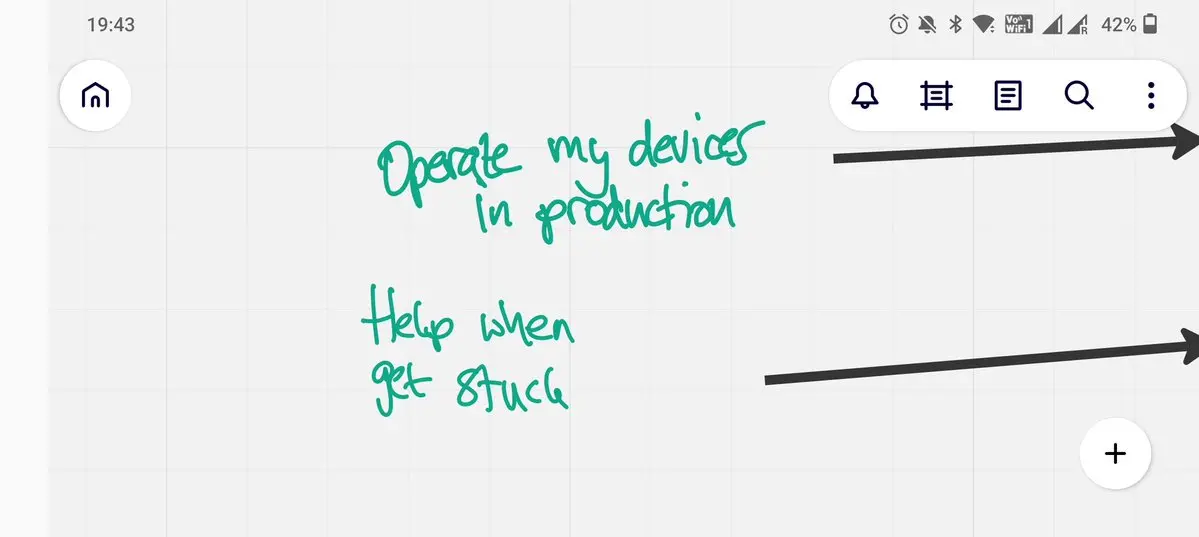 19:43
Vo WiFi 1
R
42%
Operate my devices
in production
Help when
get stuck